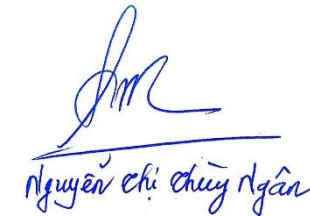 Nguyễn Thị Thùy Ngân